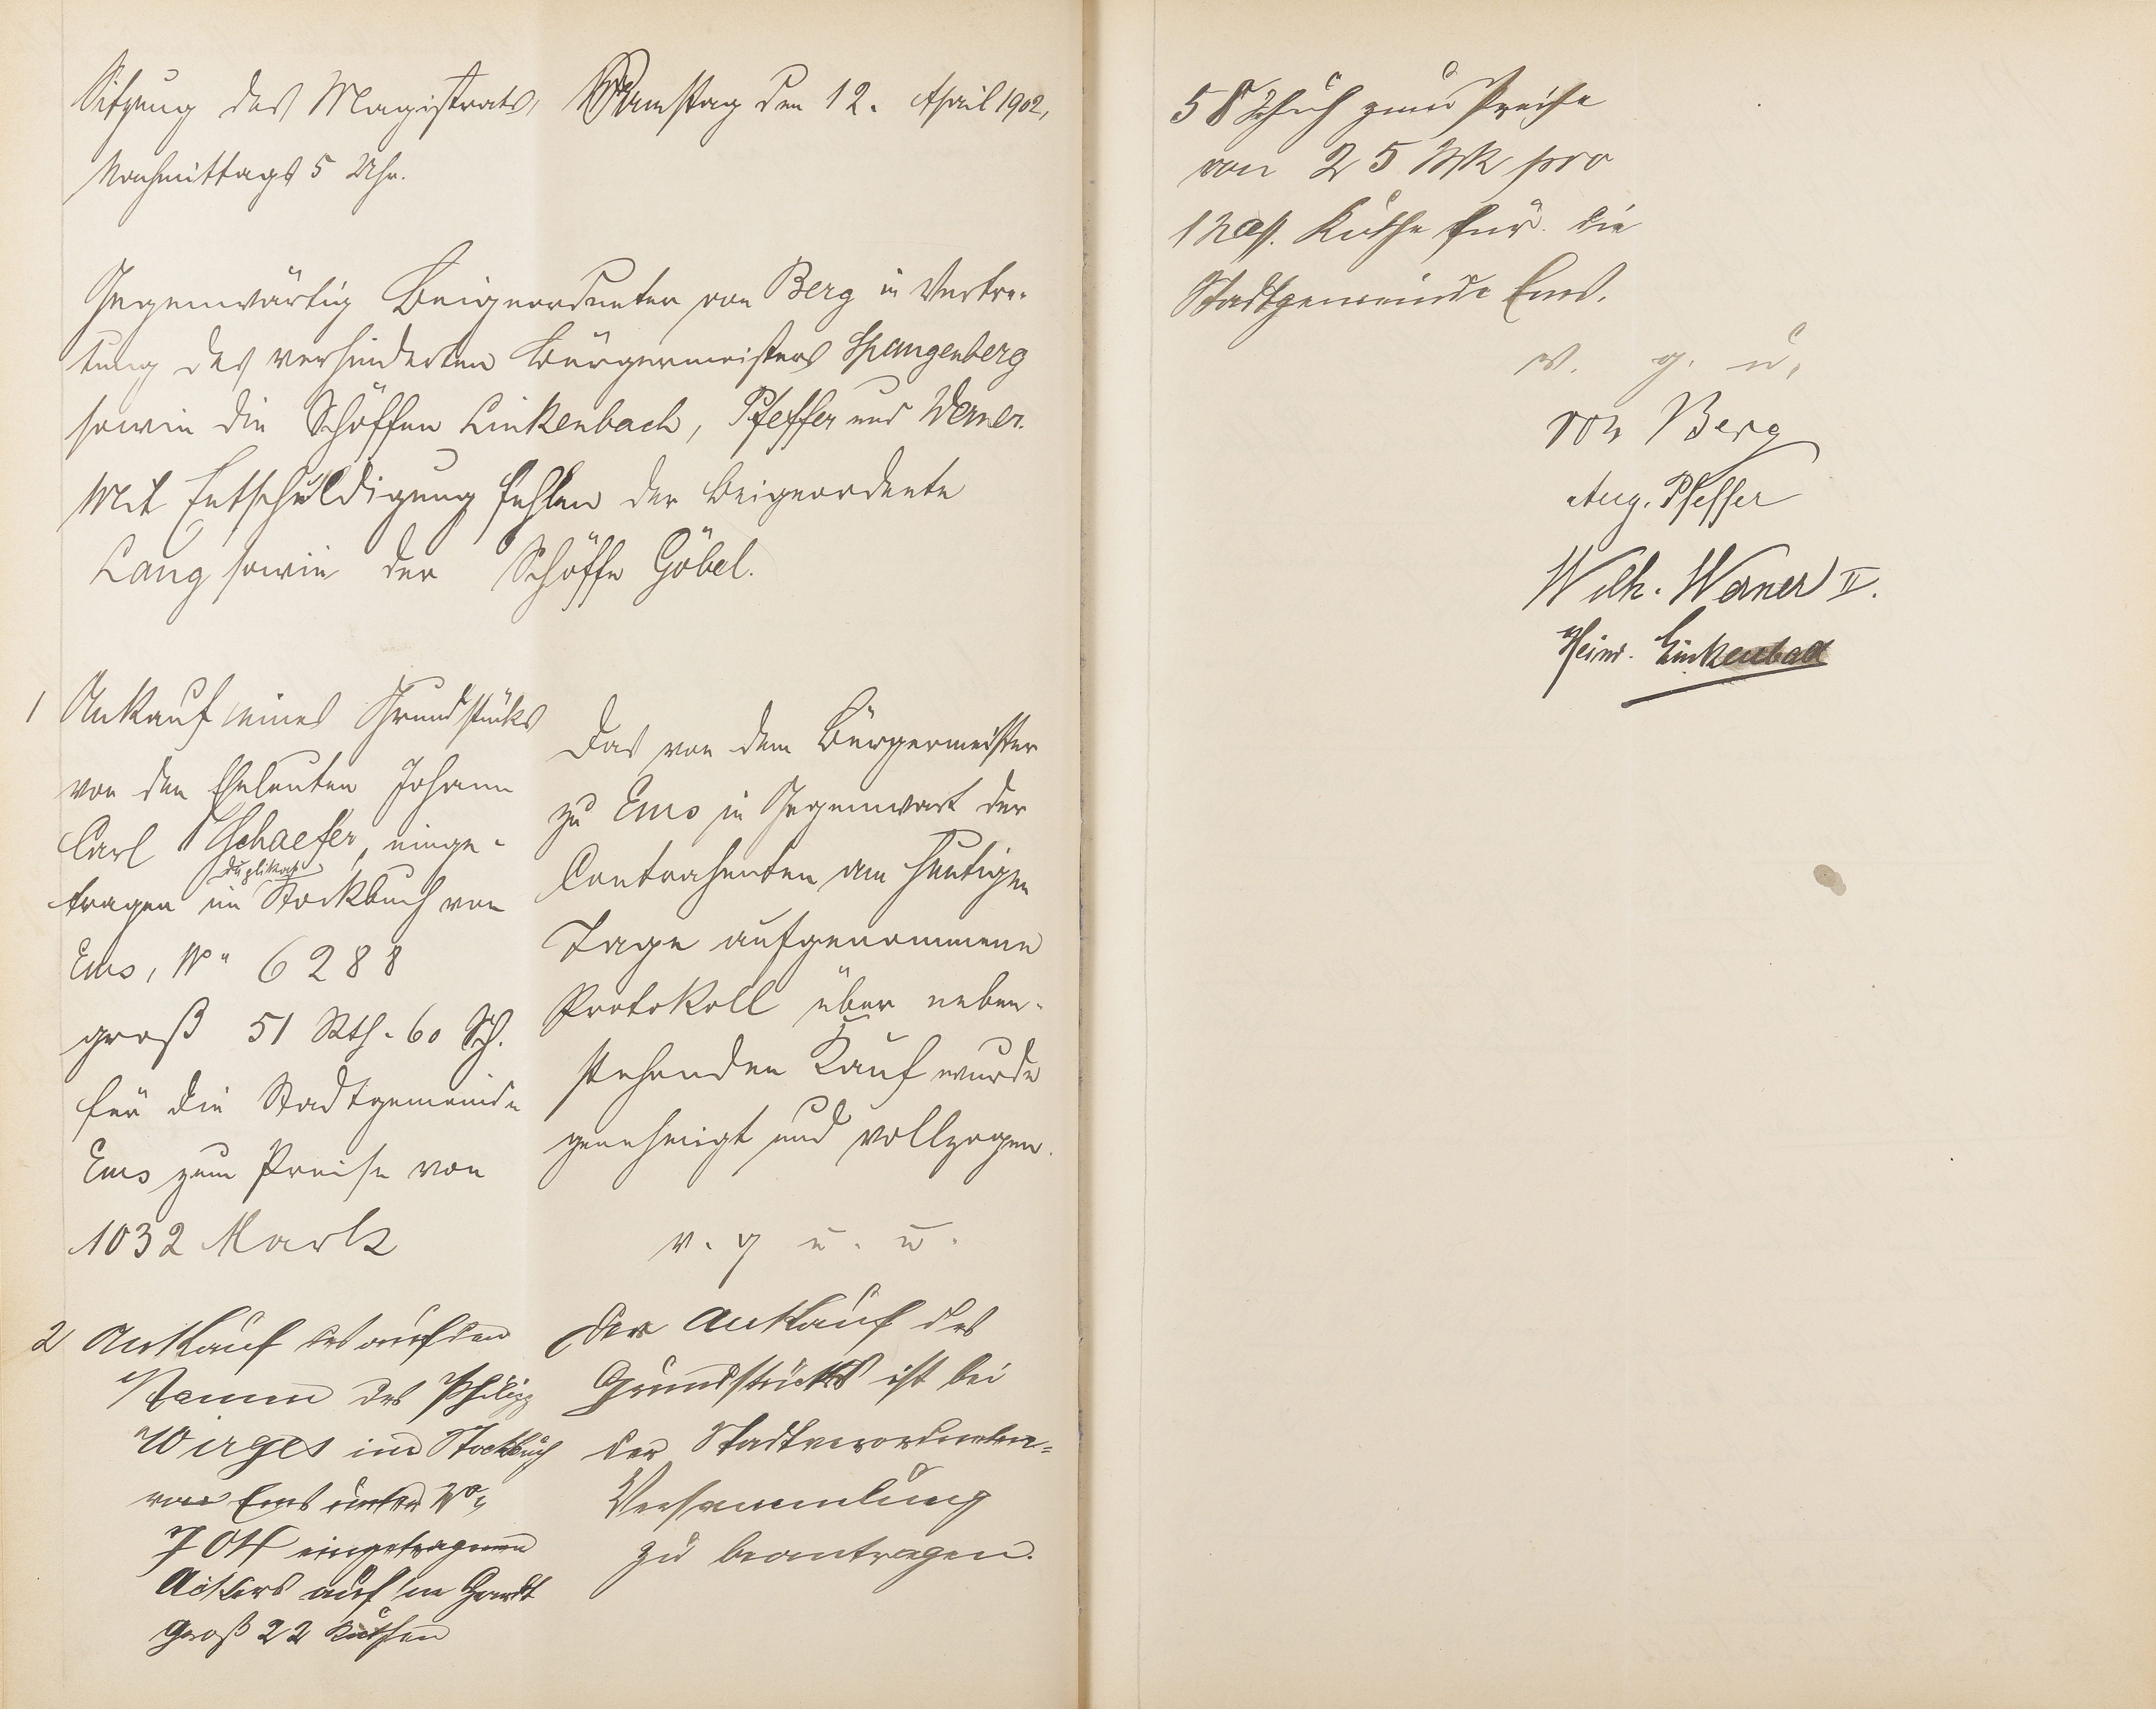 Sitzung des Magistrats, Samstag den 12. April 1902,
Nachmittags 5 Uhr.
Gegenwärtig Beigeordneter von Berg in Vertre-
tung des verhinderten Bürgermeisters Spangenberg
sowie die Schöffen Linkenbach, Pfeffer und Werner.
Mit Entschuldigung fehlen der Beigeordnete
Lang sowie der Schöffe Göbel.
1 Ankauf eines Grundstücks
von den Eheleuten Johann
Carl Schaefer, einge-
duplikat
tragen im Stockbuch von
Ems, No. 6288
groß 51 Rth. 60 Sch.
für die Stadtgemeinde
Ems zum Preise von
1032 Mark
Das von dem Bürgermeister
zu Ems in Gegenwart der
Contrahenten am heutigen
Tage aufgenommene
Protokoll über neben-
stehenden Kauf wurde
genehmigt und vollzogen.
v. g. u. u.
2 Ankauf des auf den
Namen des Philipp
Wirges im Stockbuch
von Ems unter No.
eingetragenen
Ackers auf'm
groß 22 Ruthen
Der Ankauf des
Grundstücks ist bei
der Stadtverordneten-
Versammlung
zu beantragen.
58 Schuh zum Preise
von 25 Mk pro
1 nass. Ruthe für die
Stadtgemeinde Ems.
v. g. u.
von Berg
Aug. Pfeffer
Wilh. Werner II.
Heinr. Linkenbach